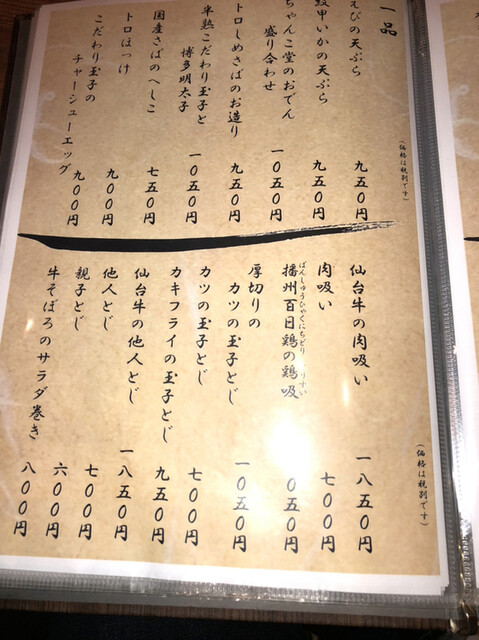 一品
えびの天ぷら
九五〇円
紋甲いかの天ぷら
九五〇円
ちゃんこ堂のおでん
盛り合わせ
一〇五〇円
トロしめさばのお造り
九五〇円
半熟こだわり玉子と
博多明太子
一〇五〇円
国産さばのへしこ
七五〇円
トロほっけ
九〇〇円
こだわり玉子の
チャーシューエッグ
九〇〇円
(価格は税別です)
仙台牛の肉吸い
一八五〇円
肉吸い
七〇〇円
ばんしゅうひゃくにちどり りすい
播州百日鶏の鶏吸
〇五〇円
厚切りの
カツの玉子とじ
一〇五〇円
カツの玉子とじ
七〇〇円
カキフライの玉子とじ
九五〇円
仙台牛の他人とじ
一八五〇円
他人とじ
七〇〇円
親子とじ
六〇〇円
牛そぼろのサラダ巻き
八〇〇円
(価格は税別です)